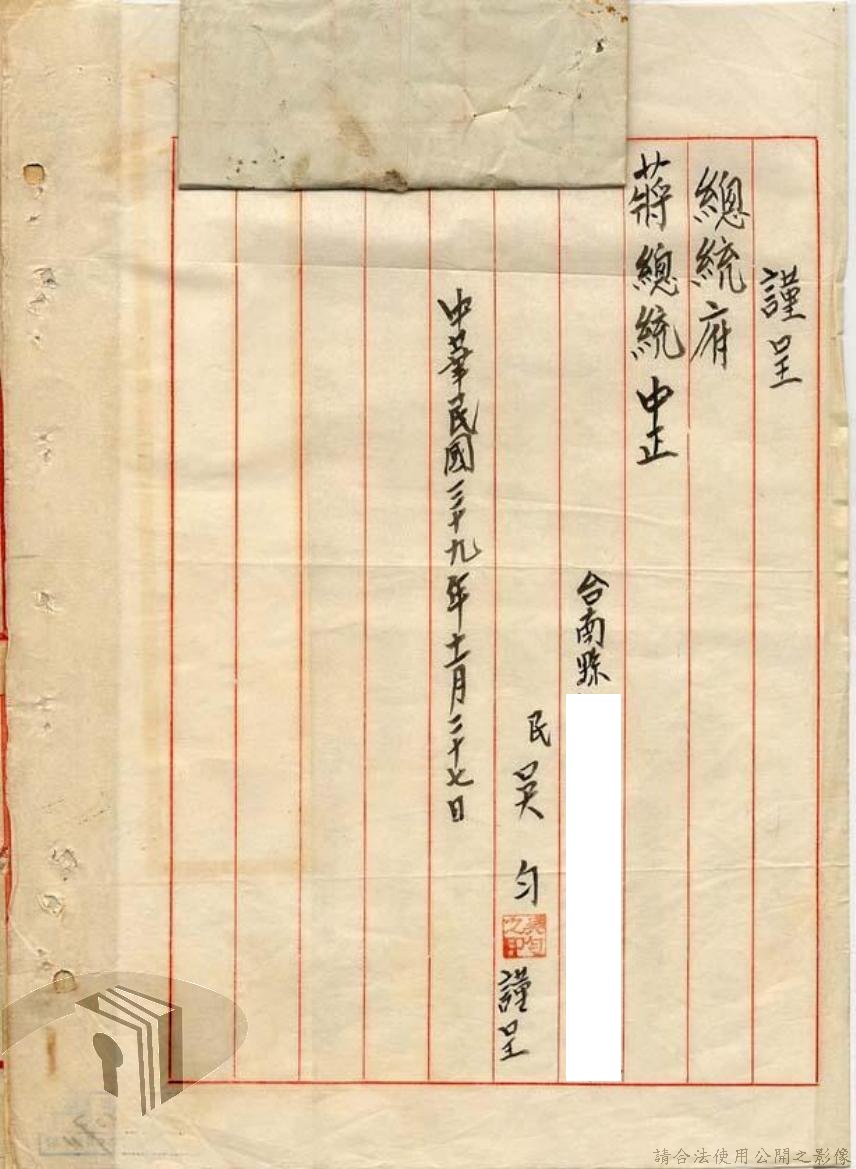 謹呈
總統府
蔣總統 中正
台南縣
民 吳 匀
吳匀之印
謹呈
中華民國三十九年十一月二十七日
請合法使用公開之影像